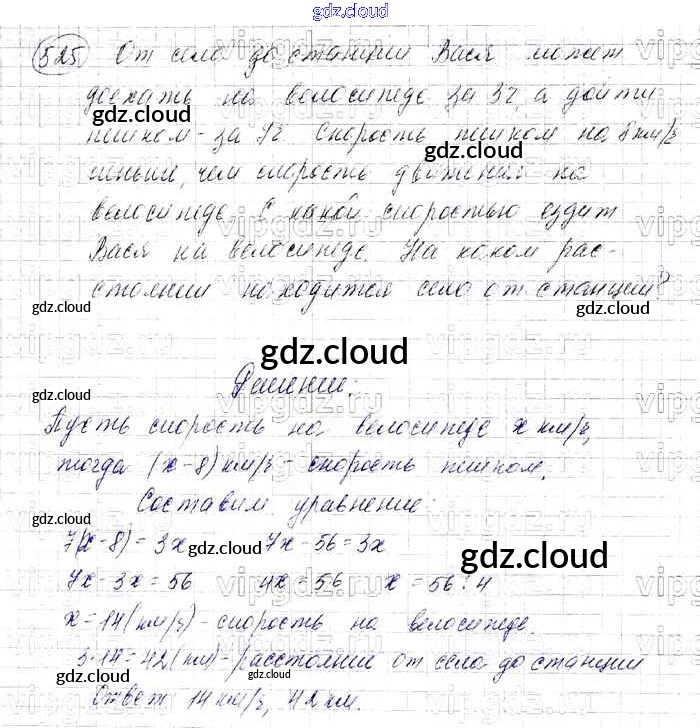 gdz.cloud
525 От села до станции Вася может
доехать на велосипеде за 3ч, а дойти
пешком - за 7ч Скорость пешком на 8 км/ч
меньше, чем скорость движения на
велосипеде. С какой скоростью ездит
Вася на велосипеде. На каком рас-
стоянии находится село от станции?
gdz.cloud
Решение:
Пусть скорость на велосипеде x км/ч,
тогда (x-8) км/ч - скорость пешком.
Составим уравнение:
7(x-8) = 3x 7x - 56 = 3x
7x - 3x = 56 4x = 56 x = 56 : 4
x = 14 (км/ч) - скорость на велосипеде.
3·14 = 42 (км) - расстояние от села до станции
Ответ 14 км/ч, 42 км.